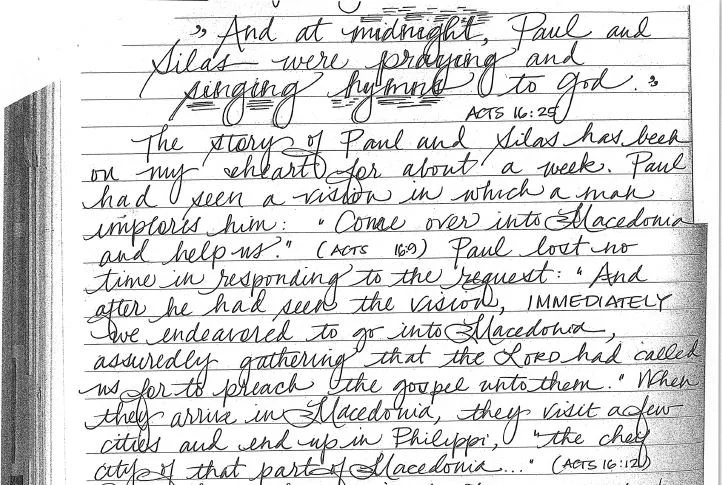 "And at midnight, Paul and
Silas were praying and
singing hymns to God."
ACTS 16:25
The story of Paul and Silas has been
on my heart for about a week. Paul
had seen a vision in which a man
implores him: "Come over into Macedonia
and help us." (ACTS 16:9) Paul lost no
time in responding to the request: "And
after he had seen the vision, IMMEDIATELY
we endeavored to go into Macedonia,
assuredly gathering that the LORD had called
us for to preach the gospel unto them." When
they arrive in Macedonia, they visit a few
cities and end up in Philippi, "the chief
city of that part of Macedonia..." (ACTS 16:12)